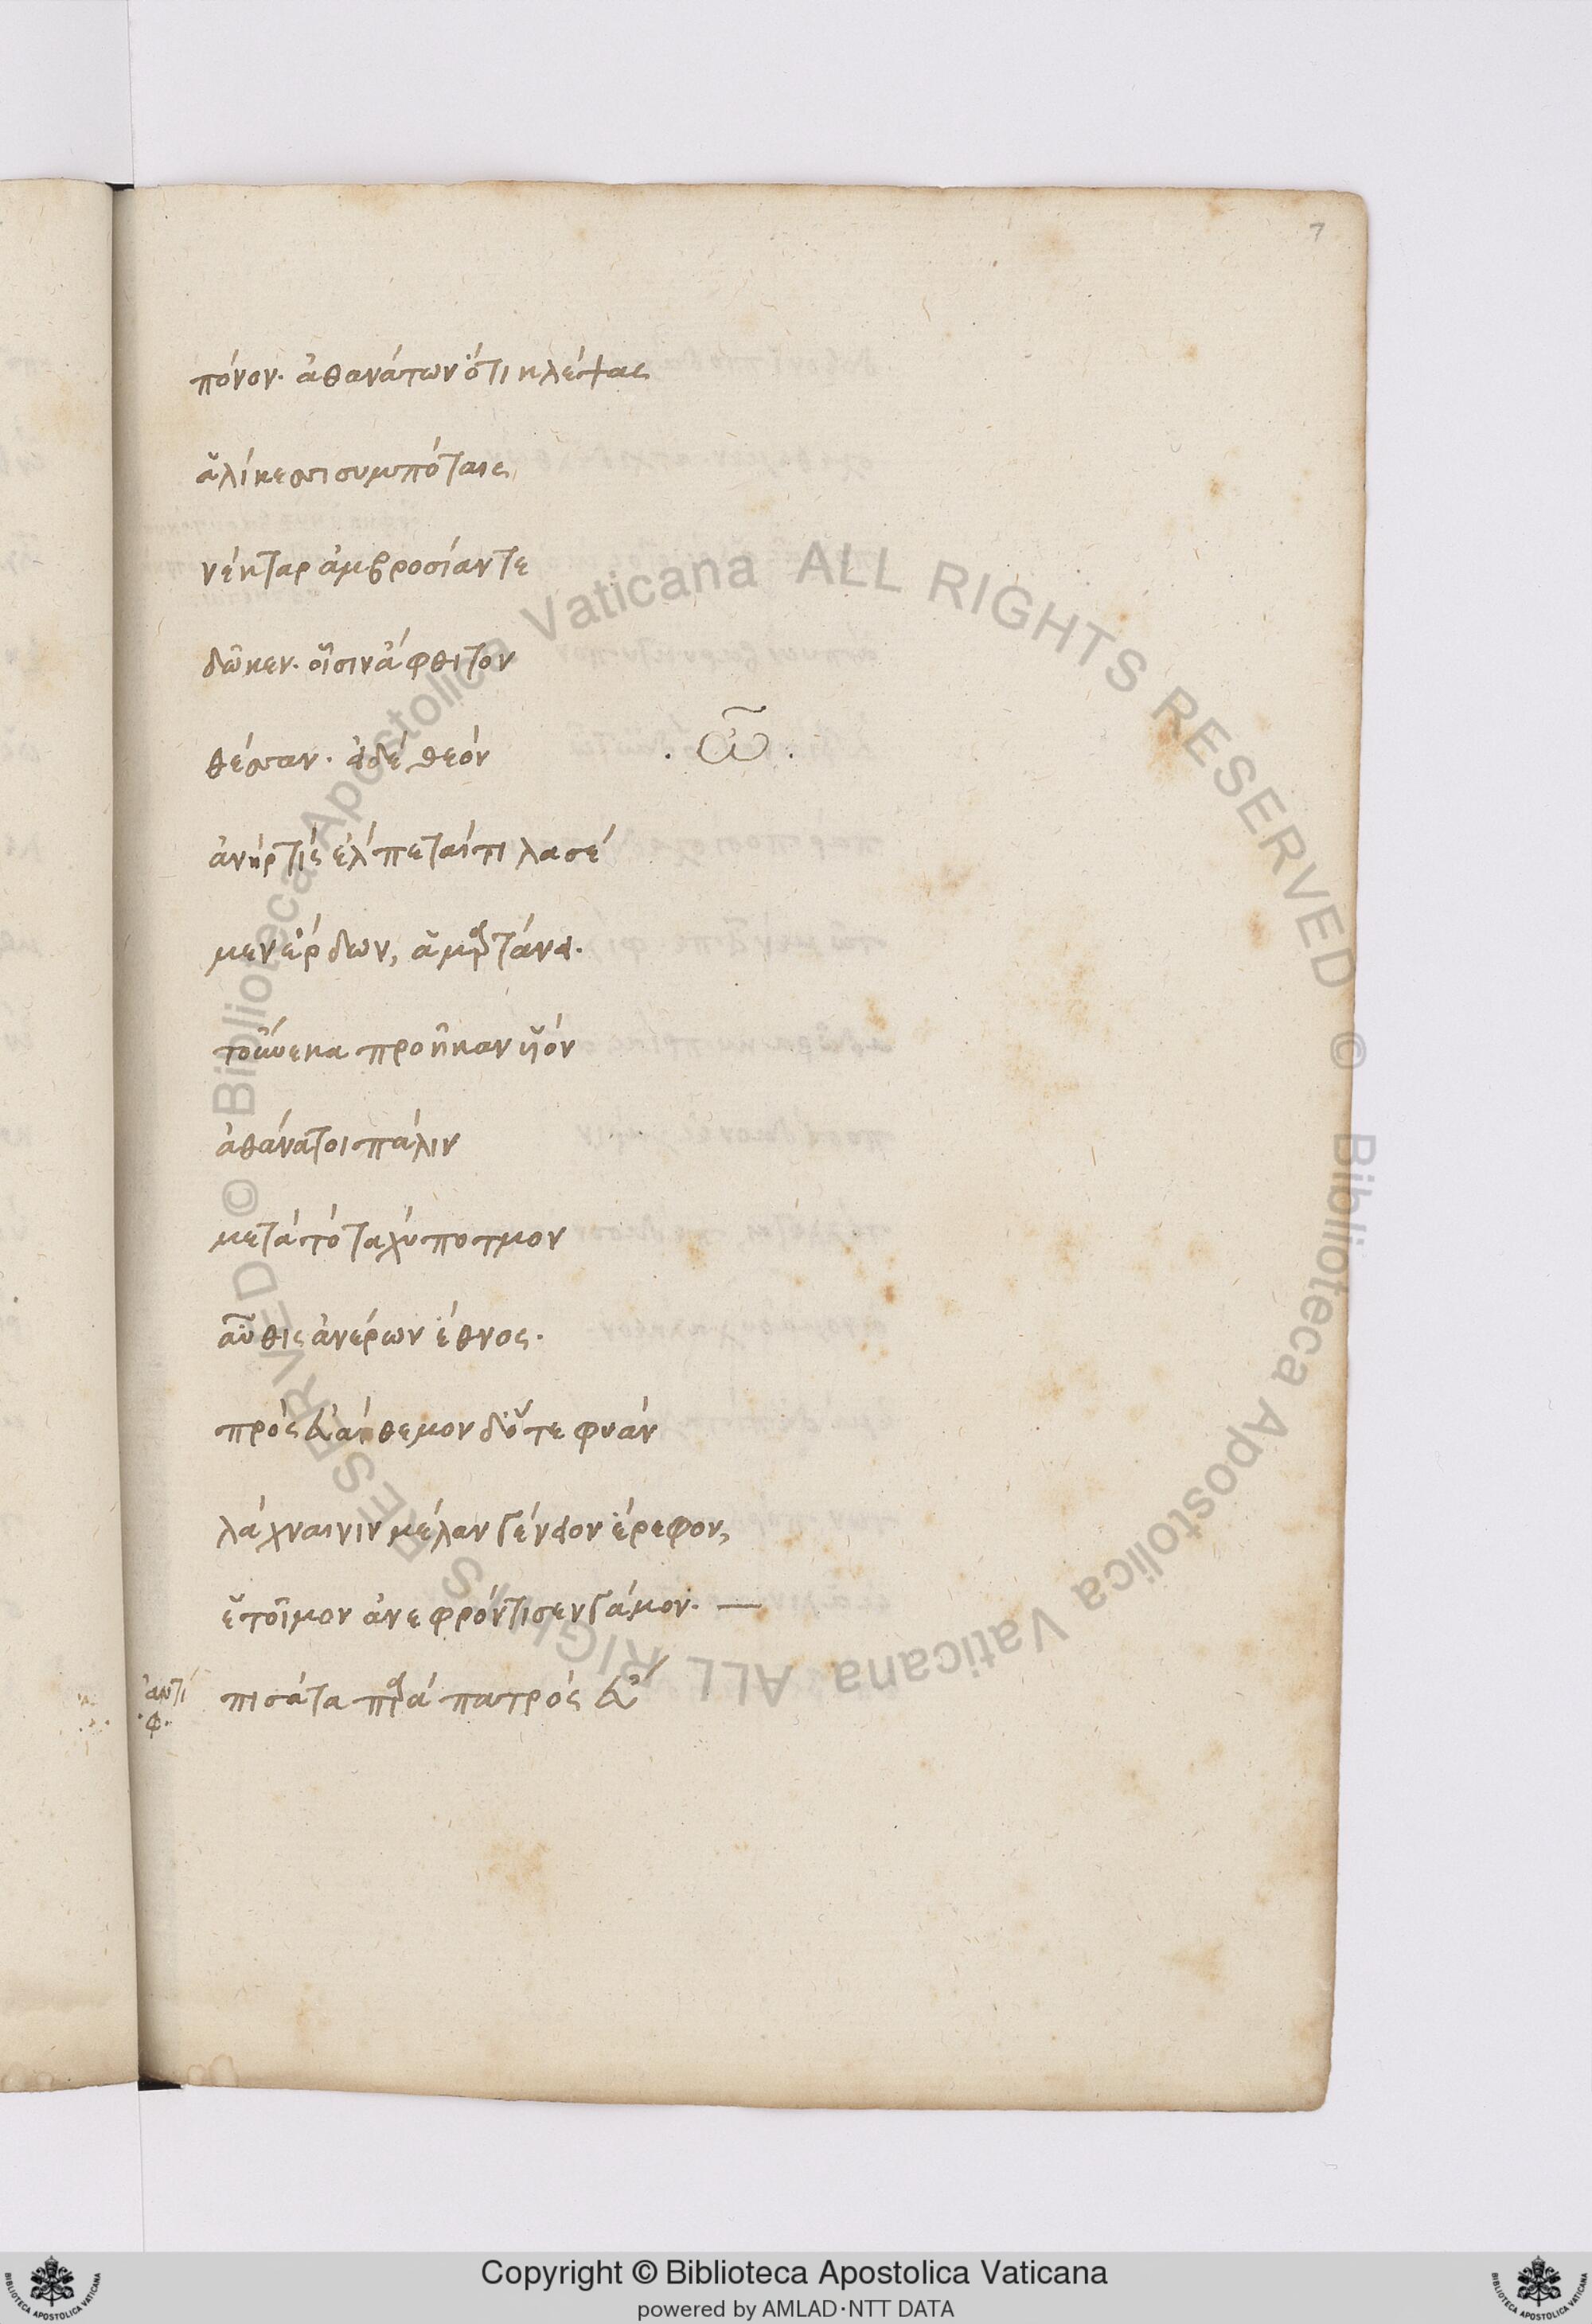 7
πόνον· ἀθανάτων ὅτι κλέψας
ἁλίκεσσι συμπόταις
νέκταρ ἀμβροσίαν τε
δῶκεν· οἷσιν ἄφθιτον
θέσσαν· εἰ δὲ θεὸν
. ω̃ .
ἀνήρ τις ἔλπεταί τι λασέ
μεν ἔρδων, ἁμαρτάνει.
τοὔνεκα προῆκαν υἱὸν
ἀθάνατοι πάλιν
μετὰ τὸ ταχύποτμον
αὖθις ἀνέρων ἔθνος.
πρὸς εὐάνθεμον δ' ὅτε φυὰν
λάχναι νιν μέλαν γένειον ἔρεφον,
ἑτοῖμον ἀνεφρόντισεν γάμον. —
ἀντι
φ.
πισάτα παρὰ πατρὸς εὔ
Copyright © Biblioteca Apostolica Vaticana
powered by AMLAD·NTT DATA
© Biblioteca Apostolica Vaticana ALL RIGHTS RESERVED
© Biblioteca Apostolica Vaticana ALL RIGHTS RESERVED